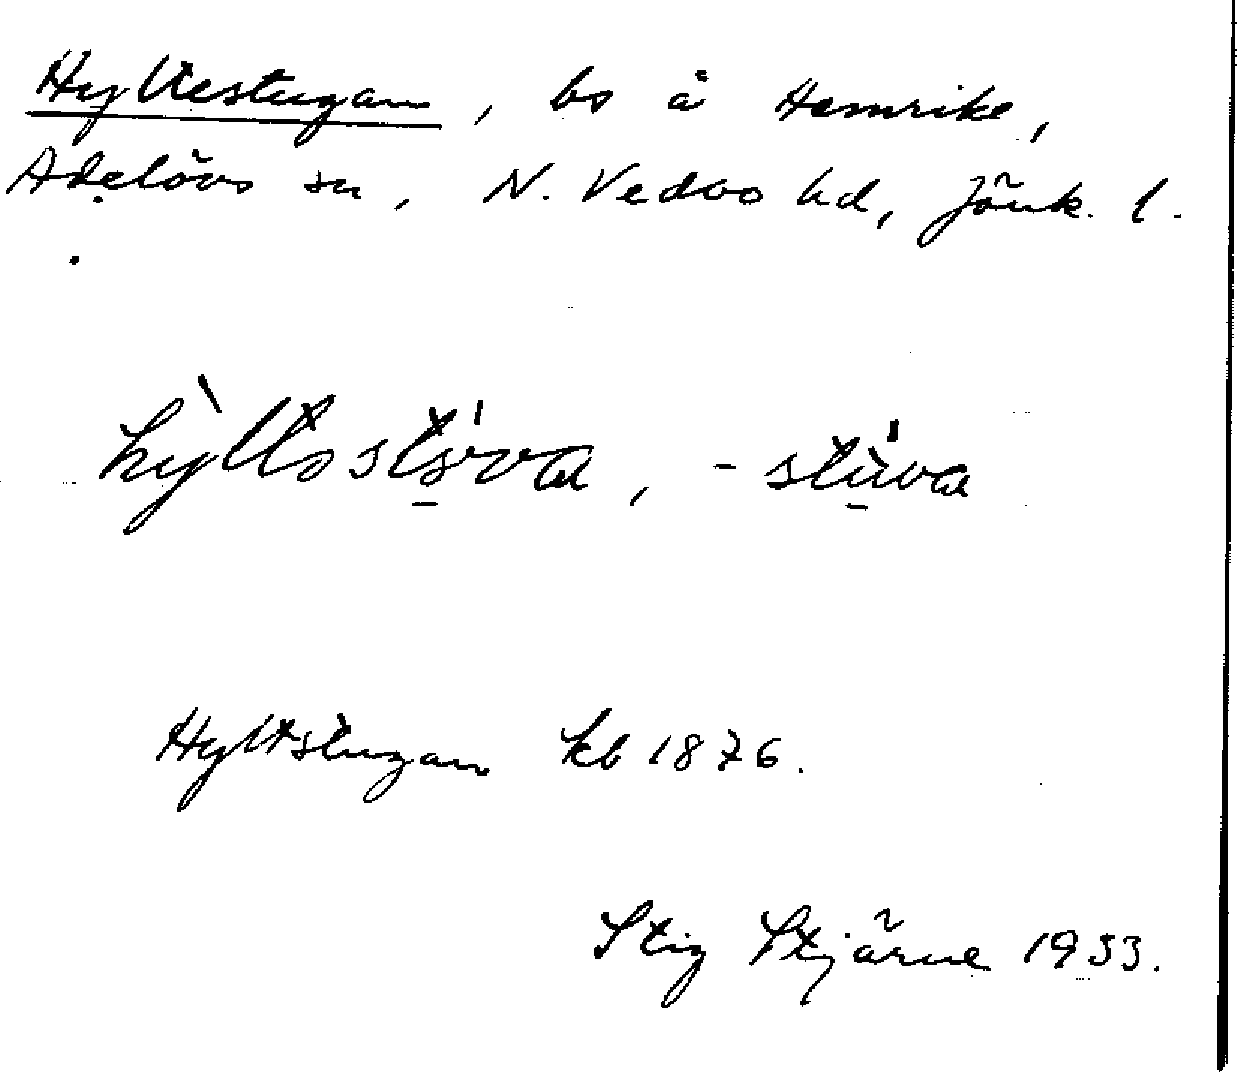 Hyltestugan, bs å Hemrike,
Adelövs sn, N. Vedbo hd, Jönk. l.
-stùva
Hyltstugan kb 1876.
Stig Stjärne 1933.